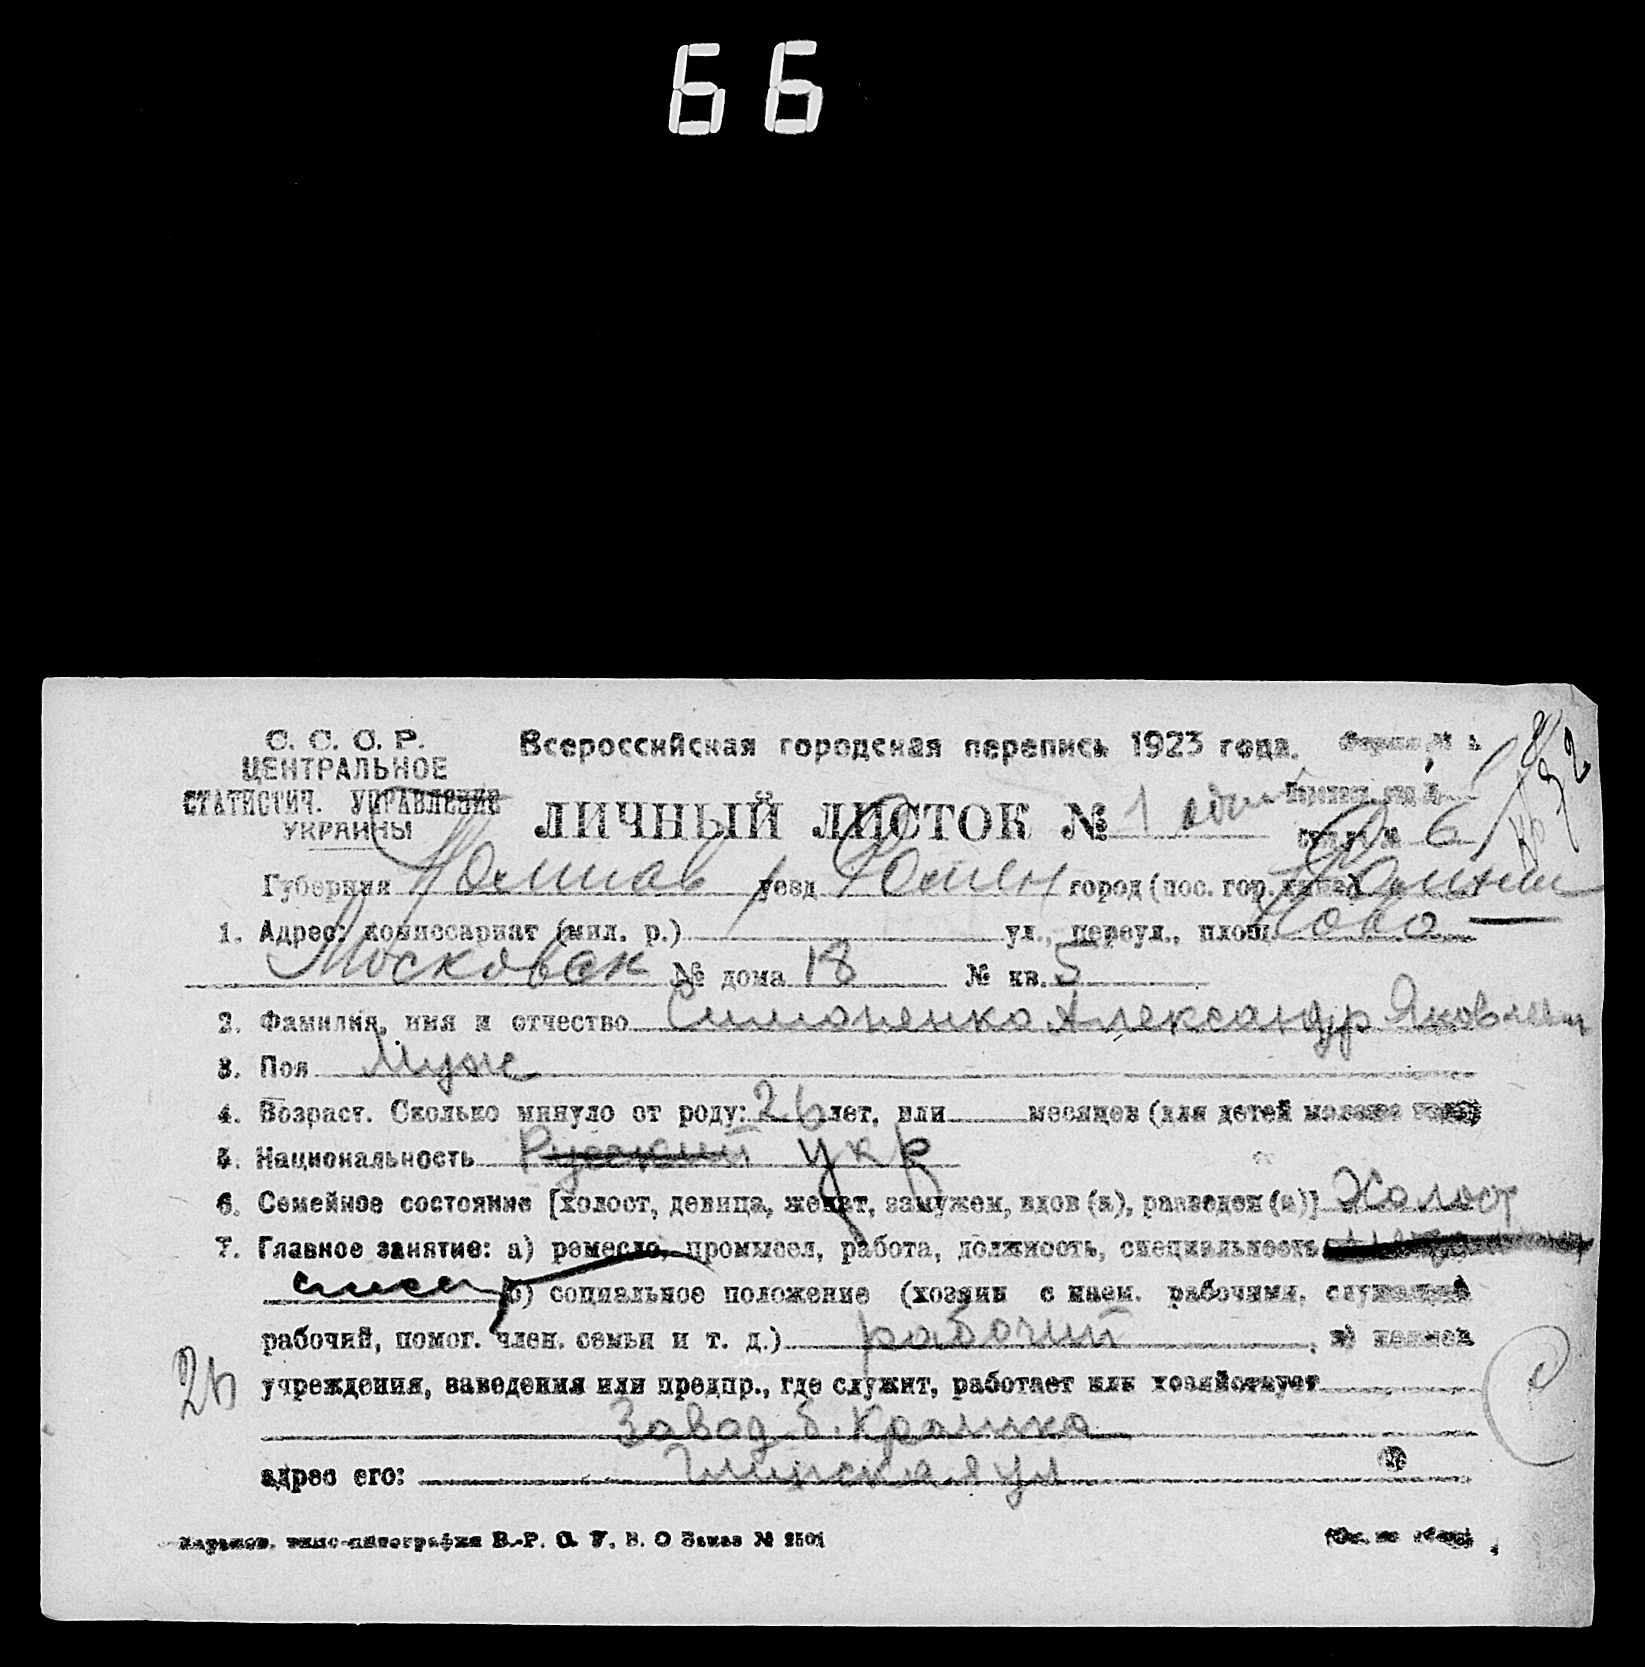 66
С. С. С. Р.
ЦЕНТРАЛЬНОЕ
СТАТИСТИЧ. УПРАВЛЕНИЕ
УКРАИНЫ
Всероссийская городская перепись 1923 года.
ЛИЧНЫЙ ЛИСТОК № 1 один
6
Губерния Полтав уезд Ромен город (пос. гор. типа) Ромны
1. Адрес: комиссариат (мил. р.) ул., переул., площ. Ново
Московск № дома 18 № кв. 5
2. Фамилия, имя и отчество Симоненко Александр Яковлевич
3. Пол Муж
4. Возраст. Сколько минуло от роду: 26 лет, или месяцев (для детей моложе года)
5. Национальность Русский укр
6. Семейное состояние [холост, девица, женат, замужем, вдов (а), разведен (а)] Холост
7. Главное занятие: а) ремесло, промысел, работа, должность, специальность
слесарь б) социальное положение (хозяин с наем. рабочими, служащий
рабочий, помог. член. семьи и т. д.) рабочий
26
учреждения, заведения или предпр., где служит, работает или хозяйствует
Завод б.
адрес его: ул
В.-Р. С. У. В. О Заказ № 2501